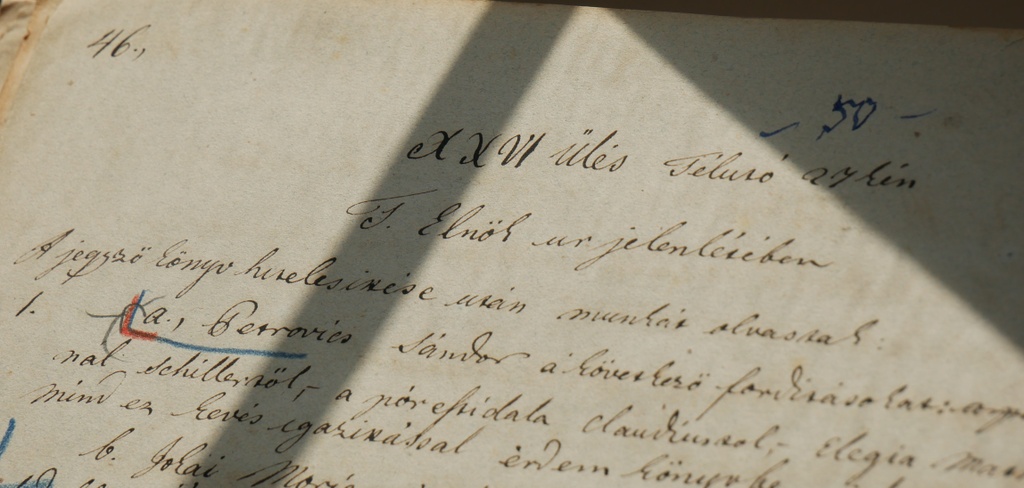 46.,
- 50 -
XXVI ülés Télutó 27kén
T. Elnök ur jelenlétében
A jegyző könyv hitelesitése után munkát olvastak:
1. a., Petrovics Sándor a következő forditásokat:
nak Schillertöl,- a pór estidala Claudiustol,- Elegia
mind ez kevés igazitással érdem könyvbe
b. Jokai